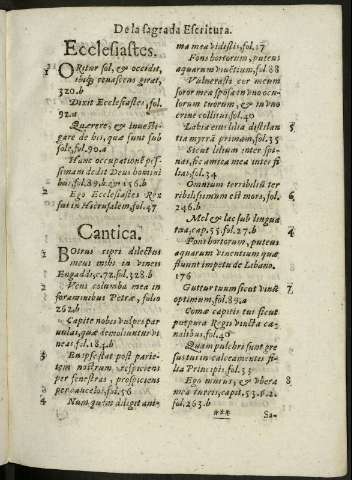 De la sagrada Escritura.
Ecclesiastes.
1 ORitur sol, & occidit,
ibiq; renascens girat,
320.b
Dixit Ecclesiastes, fol.
92.a
Quærere, & investi-
gare de his, quæ sunt sub
sole, fol.90.a
Hanc occupationẽ pes-
simam dedit Deus homini
bus, fol.89.b, & 156.b
2 Ego Ecclesiastes Rex
fui in Hierusalem, fol.47
Cantica.
1 BOtrus cipri dilectus
meus mihi in vineis
Engaddi, c.72.fol.328.b
2 Veni columba mea in
foraminibus Petræ, folio
262.b
Capite nobis vulpes par
vulas, quæ demoliuntur vi
neas, fol.184.b
3 En ipse stat post parie-
tem nostrum, respiciens
per fenestras, prospiciens
per cancelos, fol.56
4 Num quem diligit ani-
ma mea vidistis, fol.17
Fons hortorum, puteus
aquarum viventium, fol.88
Vulnerasti cor meum
soror mea sposa in vno ocu-
lorum tuorum, & in vno
crine collitui fol.40
Labia eius lilia distilan- 5
tia myrrã primam, fol.35
Sicut lilium inter spi-
nas, sic amica mea inter fi-
lias, fol.34
Omnium terribilium ter
ribilissimum est mors, fol. 6
246.b
Mel & lac sub lingua
tua, cap.55.fol.27.b 4
Fons hortorum, puteus
aquarum vincentium quæ
fluunt impetu de Libano.
176
Guttur tuum sicut vinũ 7
optimum, fol.89.a
Comæ capitis tui sicut
purpura Regis vincta ca-
nalibus, fol.40
Quam pulchri sunt gre
sus tui in calceamentis fi-
lia Principis, fol.55
Ego murus, & vbera 8
mea turris, cap.55.6.2.
fol.263.b
*** Sa-